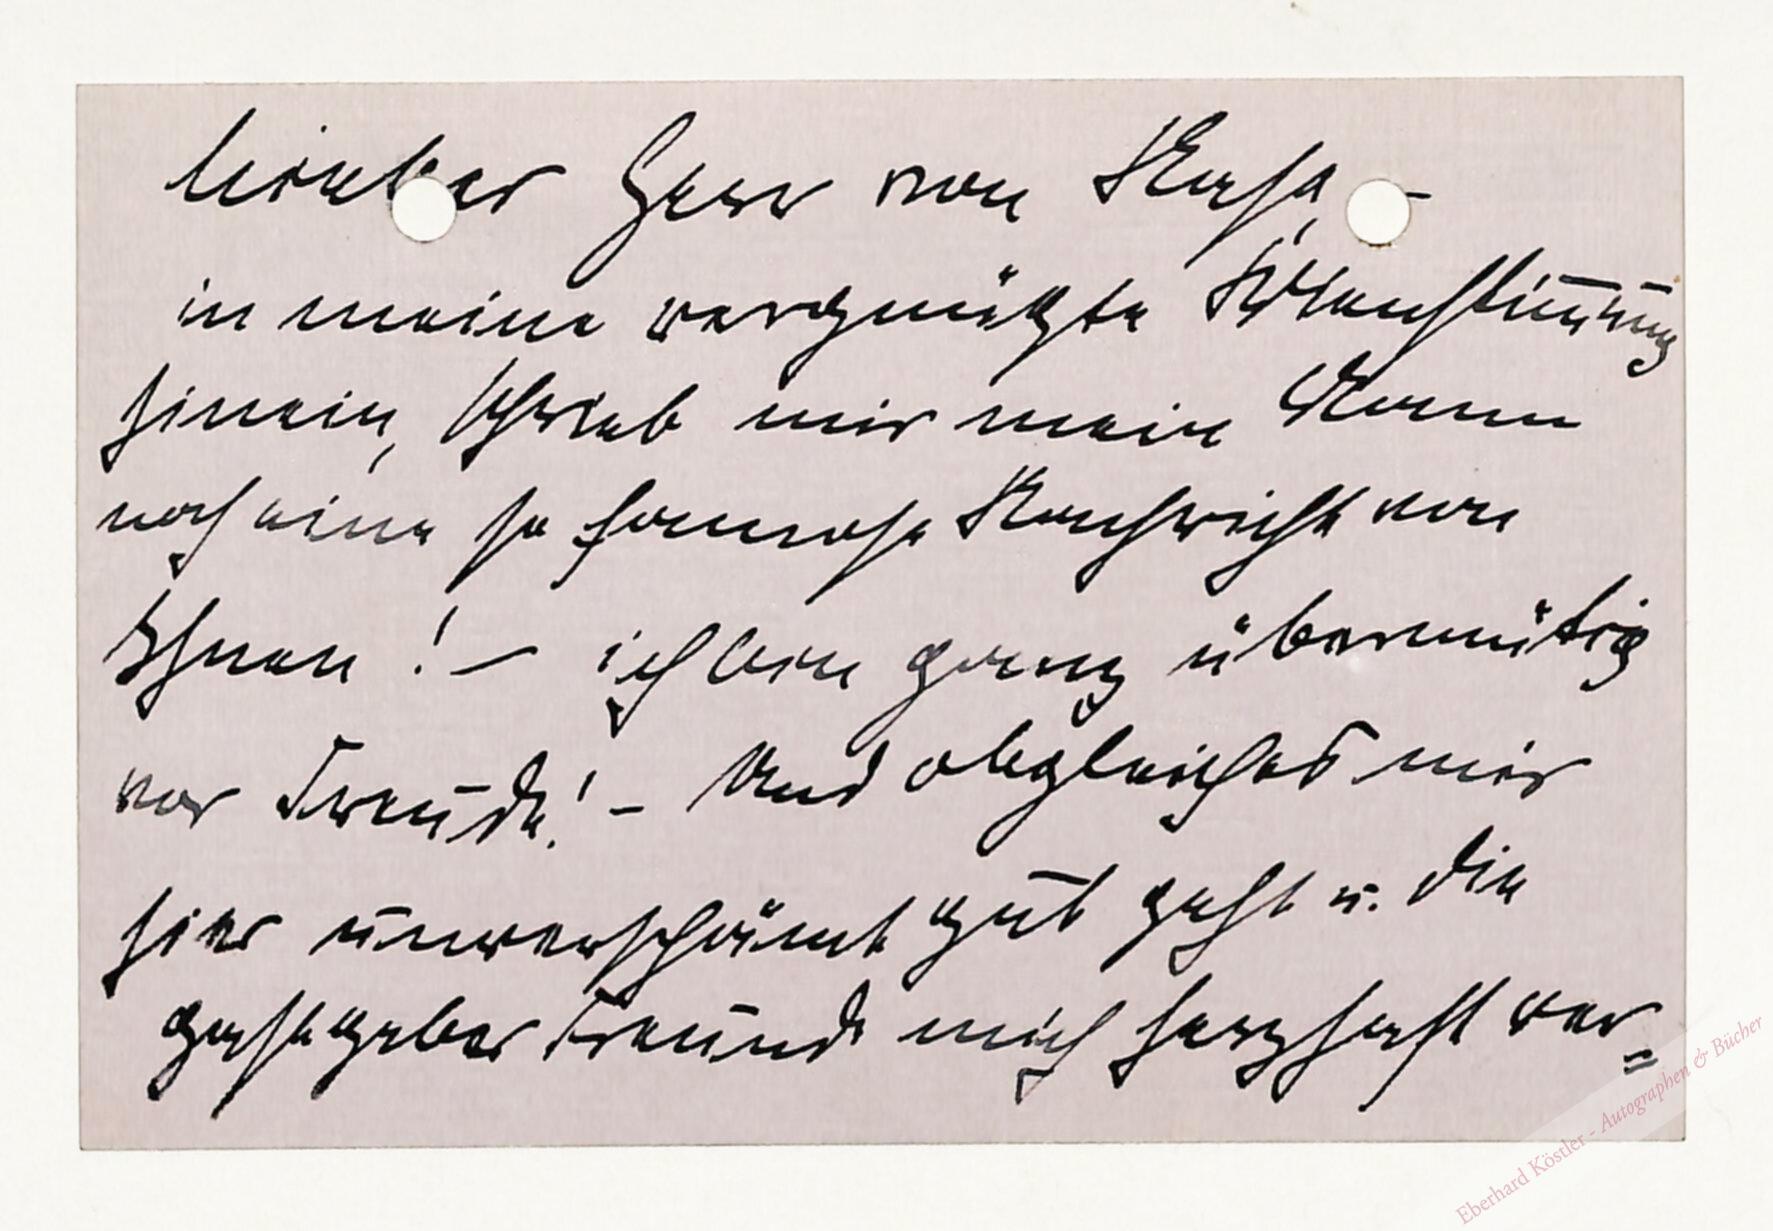 lieber Herr von Naso –
in meine vergnügte
hinein, schrieb mir mein Mann
noch eine so famose Nachricht von
Ihnen! – ich bin ganz übermütig
vor Freude! – Und obgleich es mir
hier unverschämt gut geht u. die
gastgeber Freunde mich herzhaft ver=
Eberhard Köstler - Autographen & Bücher